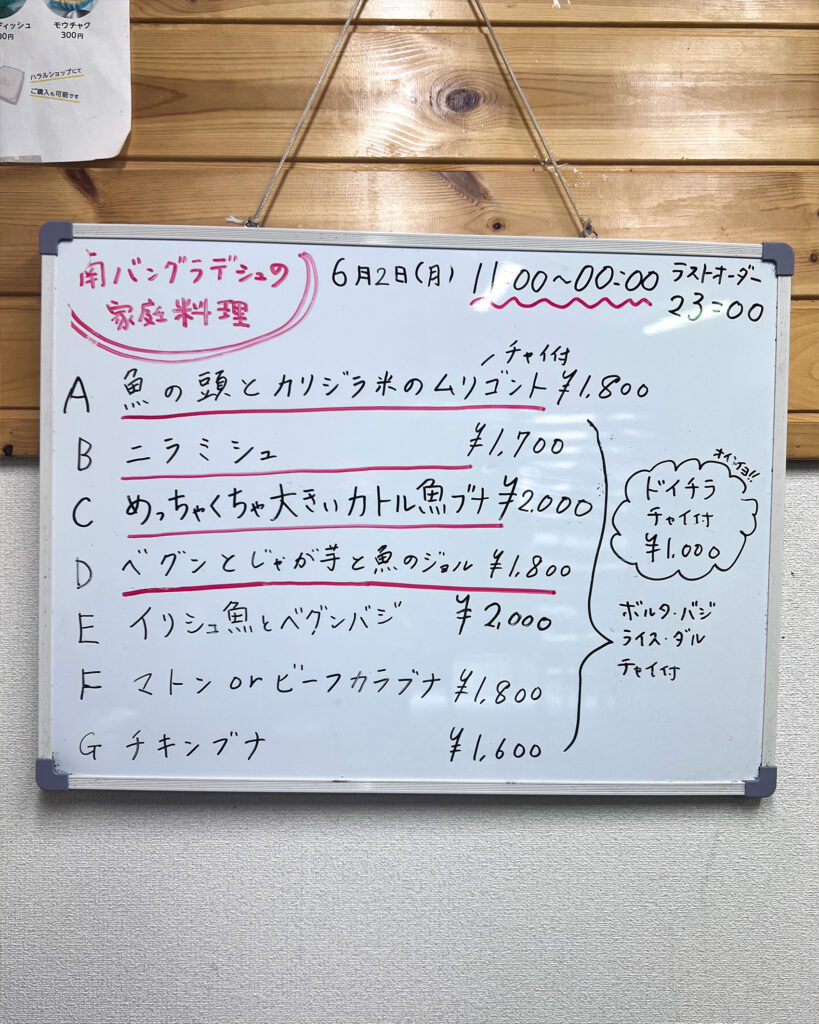 ディッシュ
00円
モウチャク
300円
ハラルショップにて
ご購入も可能です
南バングラデシュの
家庭料理
6月2日(月) 11:00〜00:00 ラストオーダー
23:00
チャイ付
A 魚の頭とカリジラ米のムリゴント ¥1.800
B ニラミシュ ¥1,700
C めっちゃくちゃ大きいカトル魚ブナ ¥2.000
D ベグンとじゃが芋と魚のジョル ¥1.800
E イリシュ魚とベグンバジ ¥2,000
F マトン or ビーフカラブナ ¥1,800
G チキンブナ ¥1,600
オイシイヨ!!
ドイチラ
チャイ付
¥1.000
ボルタ・バジ
ライス・ダル
チャイ付